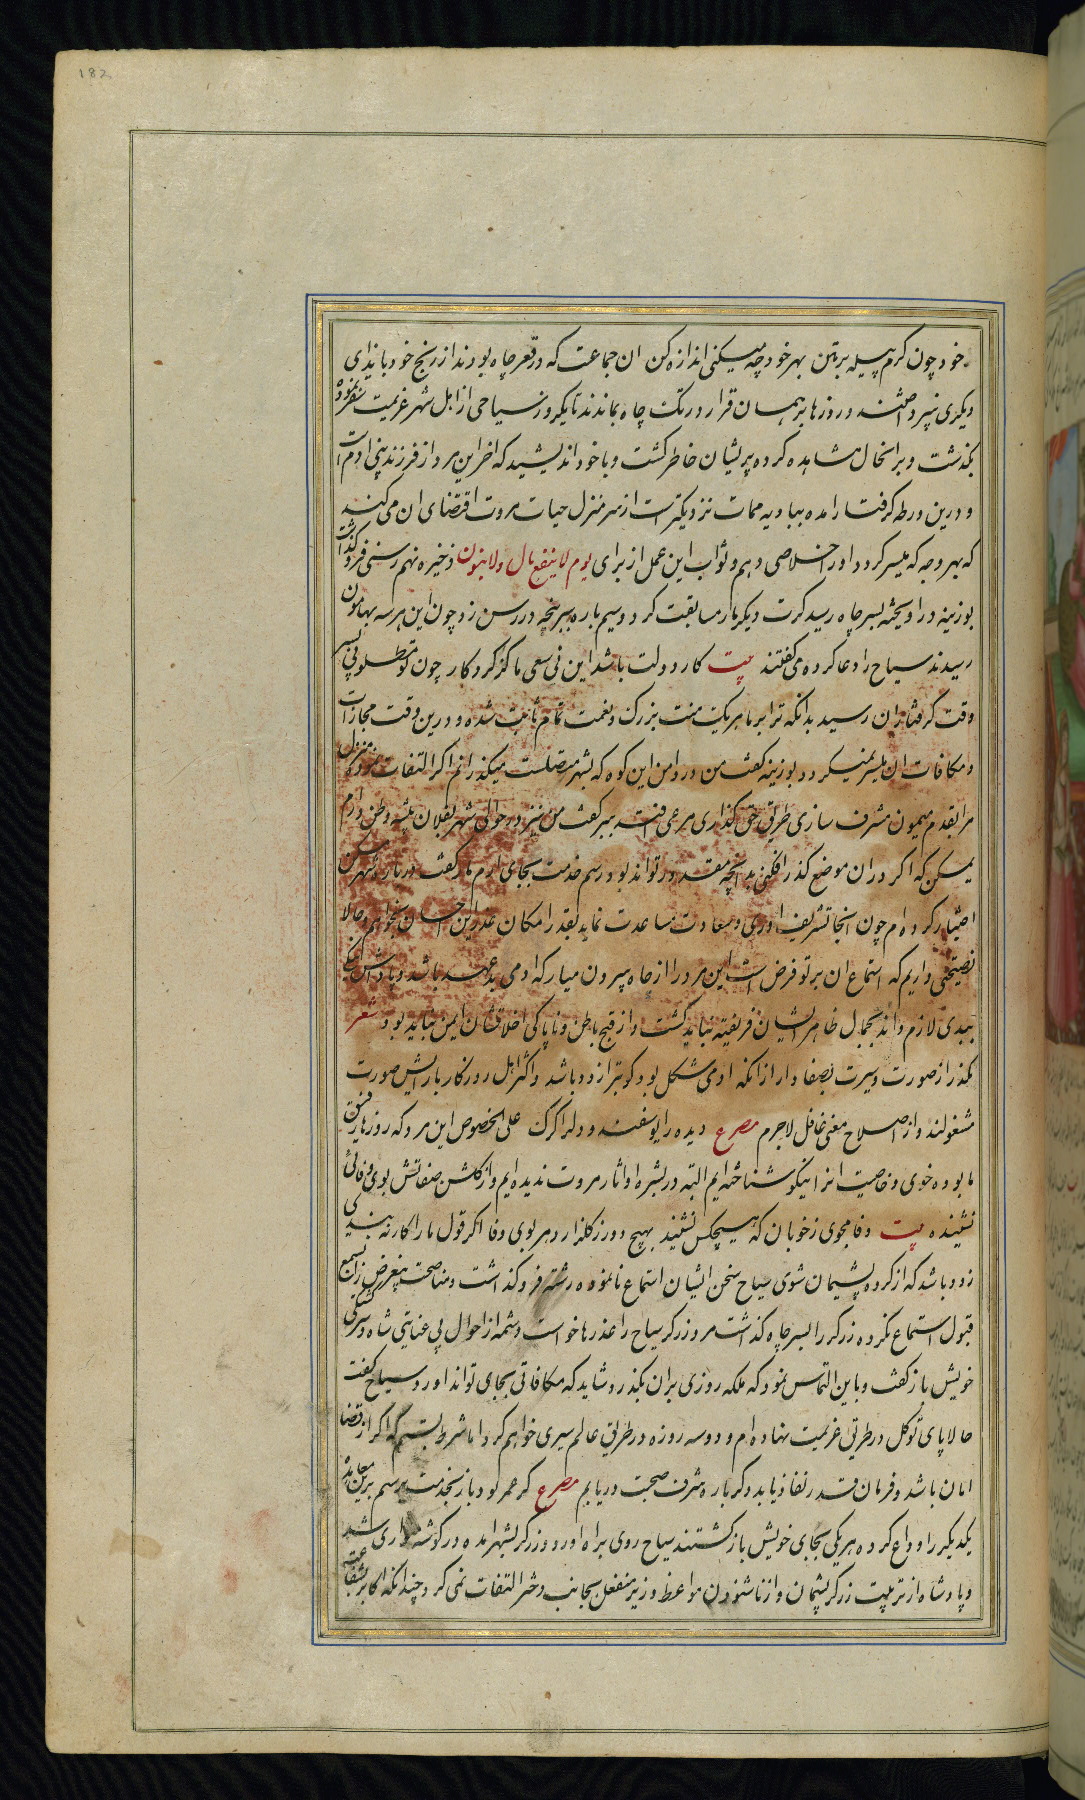 182
خود چون کرم پیله برمتن بهر خود چه میکنی اندازه کن ان جماعت که در قعر چاه بودند از رنج خود بایذای
دیکری نپرداختند و روزها بر همسان قرار در تک چاه بماندند تا یکروز سیاحی از اهل شهر عزیمت سفر نموده
بکذشت و بر انحال مشاهده کرده پریشان خاطر کشت و با خود اندیشید که اخر این مرد از فرزند بنی ادم است
و درین ورطه کرفتار امده ببادیه ممات نزدیکتر است از سر منزل حیات مروت اقتضای ان می کند
که بهر وجه که میسر کردد او را خلاصی دهم و ثواب این عمل از برای یوم لا ینفع مال و لا بنون ذخیره نهم رسنی فرو کذاشت
بوزینه در اویخته بسر چاه رسید کرت دیکر مار مسابقت کرد و سیم باره ببر پنجه در رسن زد چون این هر سه بهامون
رسیدند سیاح را دعا کرده می کفتند بیت کار دولت باشد این نی سعی ما کز کردکار چون تو مطلوبی بسر
وقت کرفتاران رسید بدانکه ترا بر ما هر یک منت بزرک و نعمت تمام ثابت شده و درین وقت مجازات
و مکافات ان میسر نمیکردد بوزینه کفت من در دامن این کوه که بشهر متصلست میکذرانم اکر التفات نموده منزل
مرا بقدم میمون مشرف سازی طریق حق کذاری مرعی افتد ببر کفت من نیز در حوالی شهر بفلان بیشه وطن دارم
یمکن که اکر دران موضع کذر افکنی بدانچه مقدور تواند بود رسم خدمت بجای ارم مار کفت در باره شهر مسکن
اختیار کرده ام چون انجا تشریف اوری و سعادت مساعدت نماید بقدر امکان عذر این احسان بخواهم حالا
نصیحتی داریم که استماع ان بر تو فرض است این مرد را از چاه بیرون میار که ادمی بد عهد باشد و پاداش نیکی
ببدی لازم داند بجمال ظاهر ایشان فریفته نباید کشت و از قبح باطن و ناپاکی اخلاقشان ایمن نباید بود شعر
بکذر از صورت و سیرت بصفا دار از انکه ادمی شکل بود کو بتر از دد باشد و اکثر اهل روزکار بارایش صورت
مشغولند و از اصلاح معنی غافل لاجرم مصرع دیده را یوسفند و دل را کرک علی الخصوص این مرد که روزها رفیق
ما بوده خوی و خاصیت او را نیکو شناخته ایم البته در بشره او اثار مروت ندیده ایم و از کلشن صفاتش بوی وفائی
نشنیده بیت وفا مجوی ز خوبان که هیچکس نشنید بهیچ دور ز کلزار دهر بوی وفا اکر قول ما را کار نه بندی
زود باشد که از کرده پشیمان شوی سیاح سخن ایشان استماع نانموده رشته فرو کذاشت و مناصحت بیغرض را بسمع
قبول استماع نکرده زرکر را بسر چاه کذاشت مرد زرکر سیاح را عذرها خواست و شمه از احوال بی عنایتی شاه و سرکشتکی
خویش باز کفت و باین التماس نمود که ملکه روزی بران بکذرد و شاید که مکافاتی بجای تواند اورد سیاح کفت
حالا پای توکل در طریق عزیمت نهاده ام و دو سه روزه در طریق عالم سیری خواهم کرد اما شرط بستم که اکر از قضا
امان باشد و فرمان قدر نفاذ یابد دکر باره شرف صحبت دریابم مصرع کر عمر بود باز بخدمت برسم برین معاهده
یکدیکر را وداع کرده هر یکی بجای خویش باز کشتند سیاح روی براه اورد و زرکر بشهر امده در کوشه متواری شد
و پادشاه از تربیت زرکر پشیمان و از ناشنودن مواعظ وزیر منفعل بجانب دختر التفات نمی کرد چندانکه اکابر بشفاعت